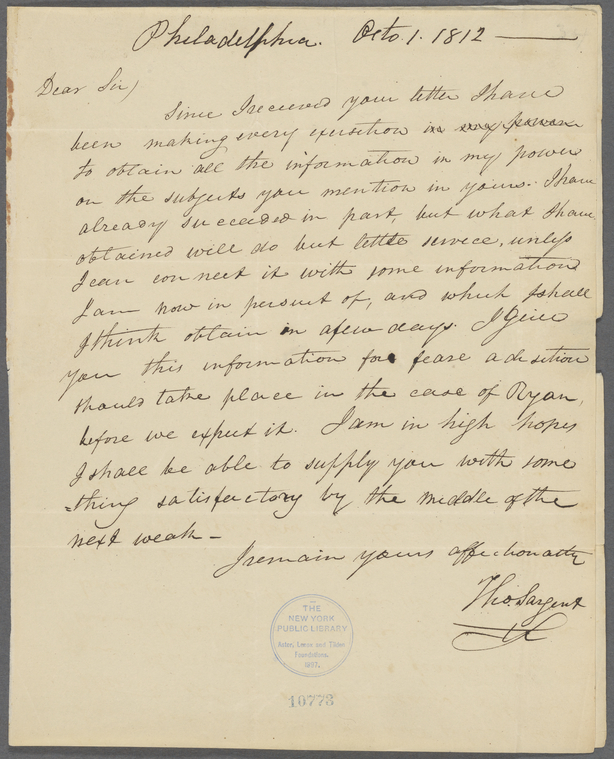 Philadelphia. Octo. 1. 1812
Dear Sir,
Since I recieved your letter I have
been making every exertion in my power
to obtain all the information in my power
on the subjects you mention in yours. I have
already succeeded in part, but what I have
obtained will do but little service, unless
I can connect it with some information
I am now in persuit of, and which I shall
I think obtain in a few days. I Give
you this information for feare a disition
should take place in the case of Ryan,
before we expect it. I am in high hopes
I shall be able to supply you with some
=thing satisfactory by the middle of the
next weak –
I remain yours affectionatly
Tho. Sargent
THE
NEW YORK
PUBLIC LIBRARY
Astor, Lenox and Tilden
Foundations.
1897.
10773